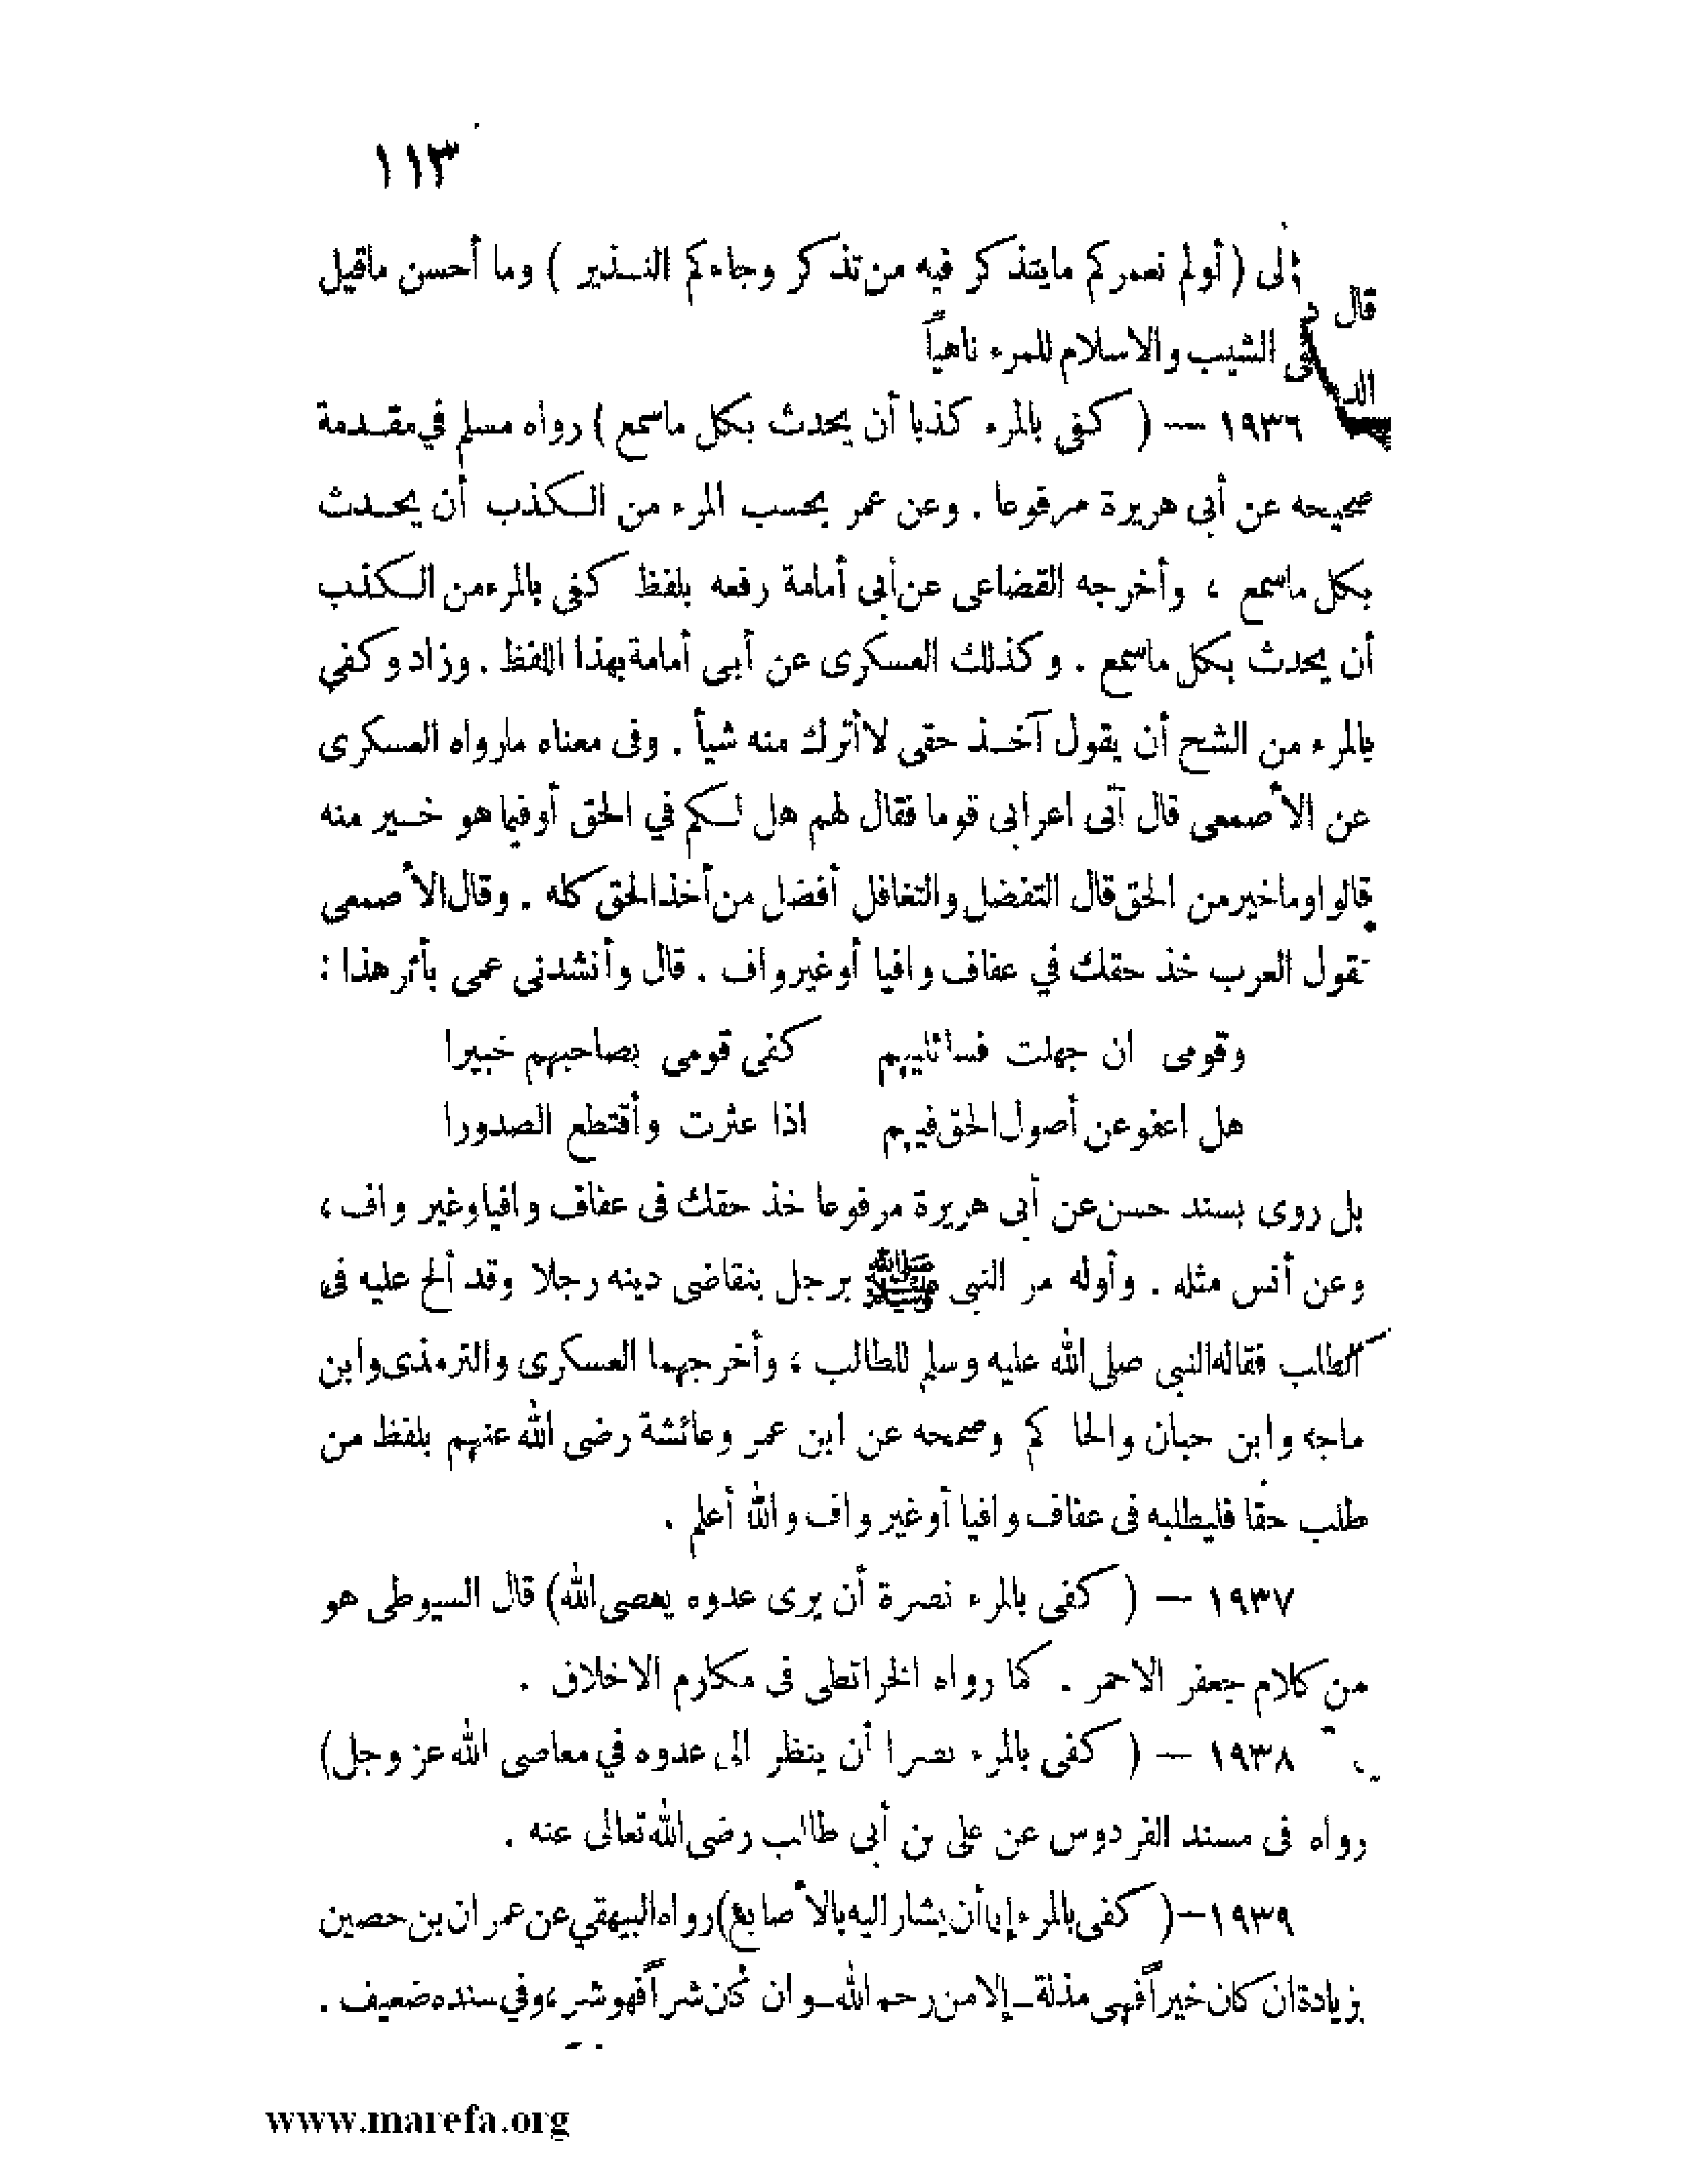 ١١٣
قال
(أولم نعمركم مايتذكر فيه من تذكر وجاءكم النـذير ) وما أحسن ماقيل
الشيب والاسلام للمرء ناهياً
١٩٣٦ — ( كفى بالمرء كذبا أن يحدث بكل ماسمع ) رواه مسلم في مقـدمة
صحيحه عن أبي هريرة مرفوعا . وعن عمر بحسب المرء من الـكذب أن يحـدث
بكل ماسمع ، وأخرجه القضاعى عن أبي أمامة رفعه بلفظ كفى بالمرء من الـكذب
أن يحدث بكل ماسمع . وكذلك العسكرى عن أبى أمامة بهذا اللفظ . وزاد وكفي
بالمرء من الشح أن يقول آخـذ حقى لا أترك منه شيأ . وفى معناه مارواه العسكرى
عن الأصمعى قال آتى اعرابى قوما فقال لهم هل لـكم في الحق أوفيما هو خـير منه
قالوا وما خير من الحق قال التفضل والتغافل أفضل من أخذ الحق كله . وقال الأصمعى
تقول العرب خذ حقك في عفاف وافيا أو غير واف . قال وأنشدنى عمى بأثر هذا :
وقومى ان جهلت فسائليهم كفى قومى بصاحبهم خبيرا
هل اعفو عن أصول الحق فيهم اذا عثرت وأقتطع الصدورا
بل روى بسند حسن عن أبى هريرة مرفوعا خذ حقك فى عفاف وافيا وغير واف ،
وعن أنس مثله . وأوله مر النبى ﷺ برجل يتقاضى دينه رجلا وقد ألح عليه فى
الطلب فقاله النبى صلى الله عليه وسلم للطالب ، وأخرجهما العسكرى والترمذى وابن
ماجه وابن حبان والحاكم وصححه عن ابن عمر وعائشة رضى الله عنهم بلفظ من
طلب حقا فليطلبه فى عفاف وافيا أو غير واف والله أعلم .
١٩٣٧ — ( كفى بالمرء نصرة أن يرى عدوه يعصى الله) قال السيوطى هو
من كلام جعفر الاحمر . كما رواه الخرائطى فى مكارم الاخلاق .
١٩٣٨ — ( كفى بالمرء نصرا أن ينظر الى عدوه في معاصى الله عز وجل)
رواه فى مسند الفردوس عن على بن أبى طالب رضى الله تعالى عنه .
١٩٣٩-( كفى بالمرء إثما أن يشار اليه بالأصابع) رواه البيهقي عن عمران بن حصين
بزيادة ان كان خيراً فهى مذلة _إلا من رحم الله _وان كان شراً فهو شر ، وفي سنده ضعيف .
www.marefa.org